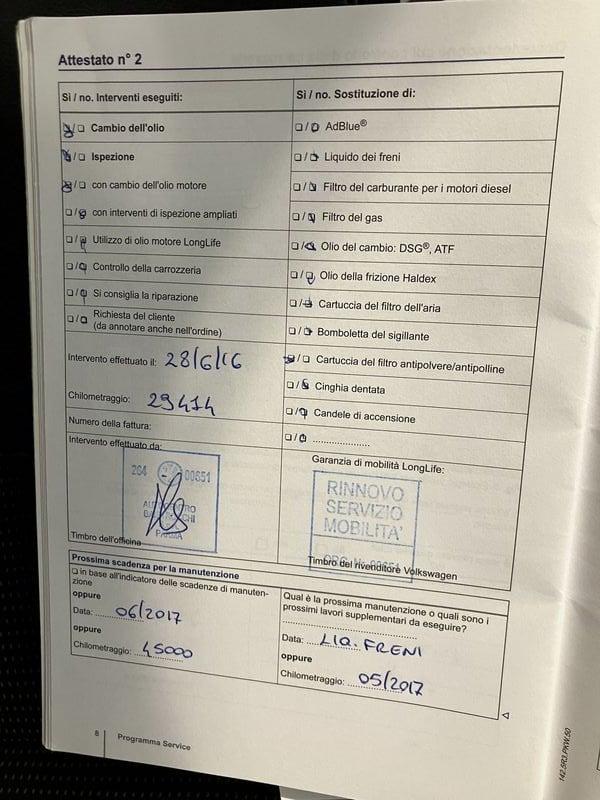 Attestato n° 2
Sì / no. Interventi eseguiti:
Cambio dell'olio
Ispezione
con cambio dell'olio motore
con interventi di ispezione ampliati
Utilizzo di olio motore LongLife
Controllo della carrozzeria
Si consiglia la riparazione
Richiesta del cliente
(da annotare anche nell'ordine)
Intervento effettuato il: 28/6/16
Chilometraggio: 29414
Numero della fattura:
Intervento effettuato da:
264 00851
PARMA
Timbro dell'officina
Sì / no. Sostituzione di:
AdBlue®
Liquido dei freni
Filtro del carburante per i motori diesel
Filtro del gas
Olio del cambio: DSG®, ATF
Olio della frizione Haldex
Cartuccia del filtro dell'aria
Bomboletta del sigillante
Cartuccia del filtro antipolvere/antipolline
Cinghia dentata
Candele di accensione
Garanzia di mobilità LongLife:
RINNOVO
SERVIZIO
MOBILITA'
Timbro del rivenditore Volkswagen
Prossima scadenza per la manutenzione
in base all'indicatore delle scadenze di manuten-
zione
oppure
Data: 06/2017
oppure
Chilometraggio: 45000
Qual è la prossima manutenzione o quali sono i
prossimi lavori supplementari da eseguire?
Data: LIQ. FRENI
oppure
Chilometraggio: 05/2017
8 Programma Service
142.5R3.PKW.50